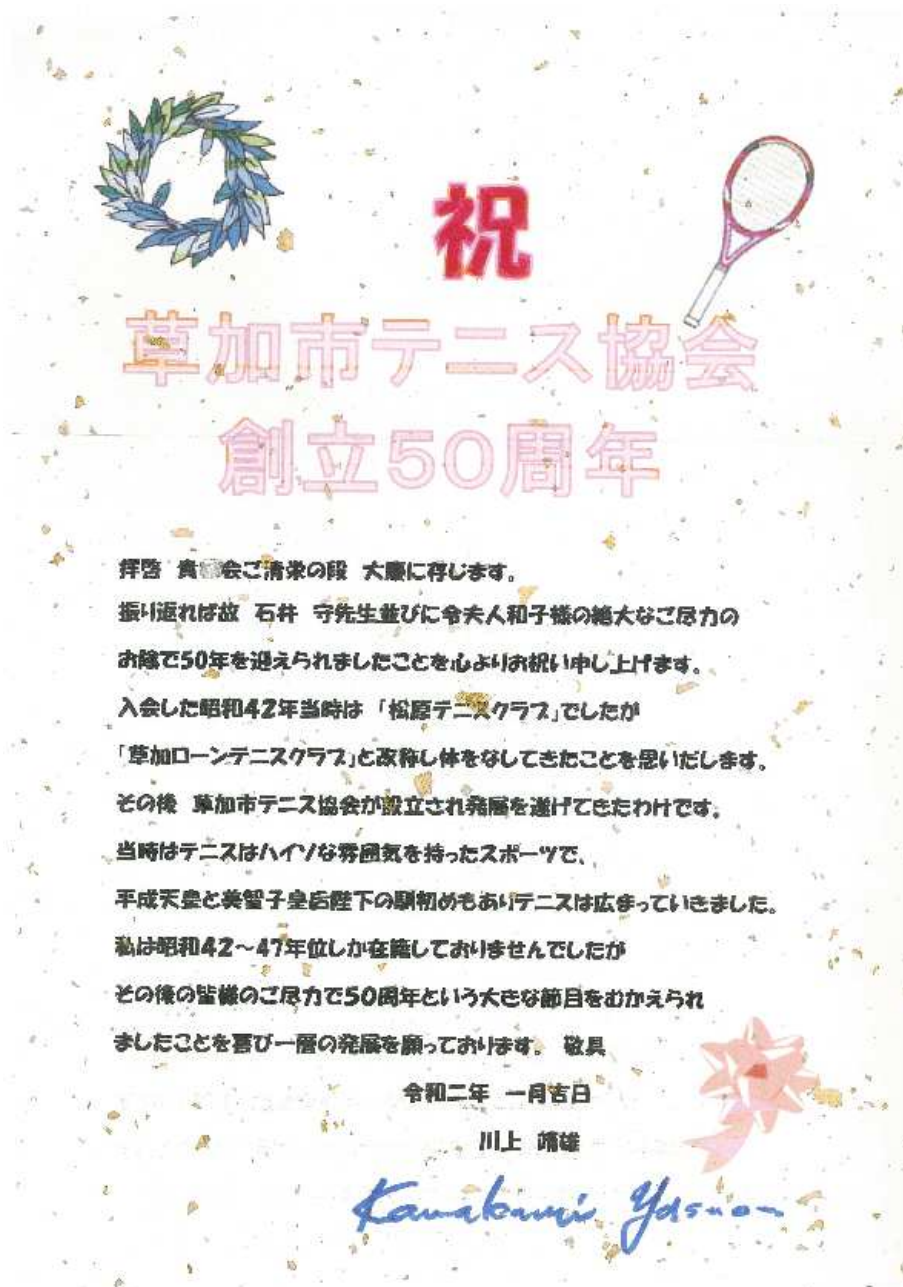 祝
草加市テニス協会
創立50周年
拝啓 貴 会ご清栄の段 大慶に存じます。
振り返れば故 石井 守先生並びに令夫人和子様の絶大なご尽力の
お陰で50年を迎えられましたことを心よりお祝い申し上げます。
入会した昭和42年当時は「松原テニスクラブ」でしたが
「草加ローンテニスクラブ」と改称し体をなしてきたことを思いだします。
その後 草加市テニス協会が設立され発展を遂げてきたわけです。
当時はテニスはハイソな雰囲気を持ったスポーツで、
平成天皇と美智子皇后陛下の馴初めもありテニスは広まっていきました。
私は昭和42～47年位しか在籍しておりませんでしたが
その後の皆様のご尽力で50周年という大きな節目をむかえられ
ましたことを喜び一層の発展を願っております。 敬具
令和二年 一月吉日
川上 靖雄
Kawakami Yasuo